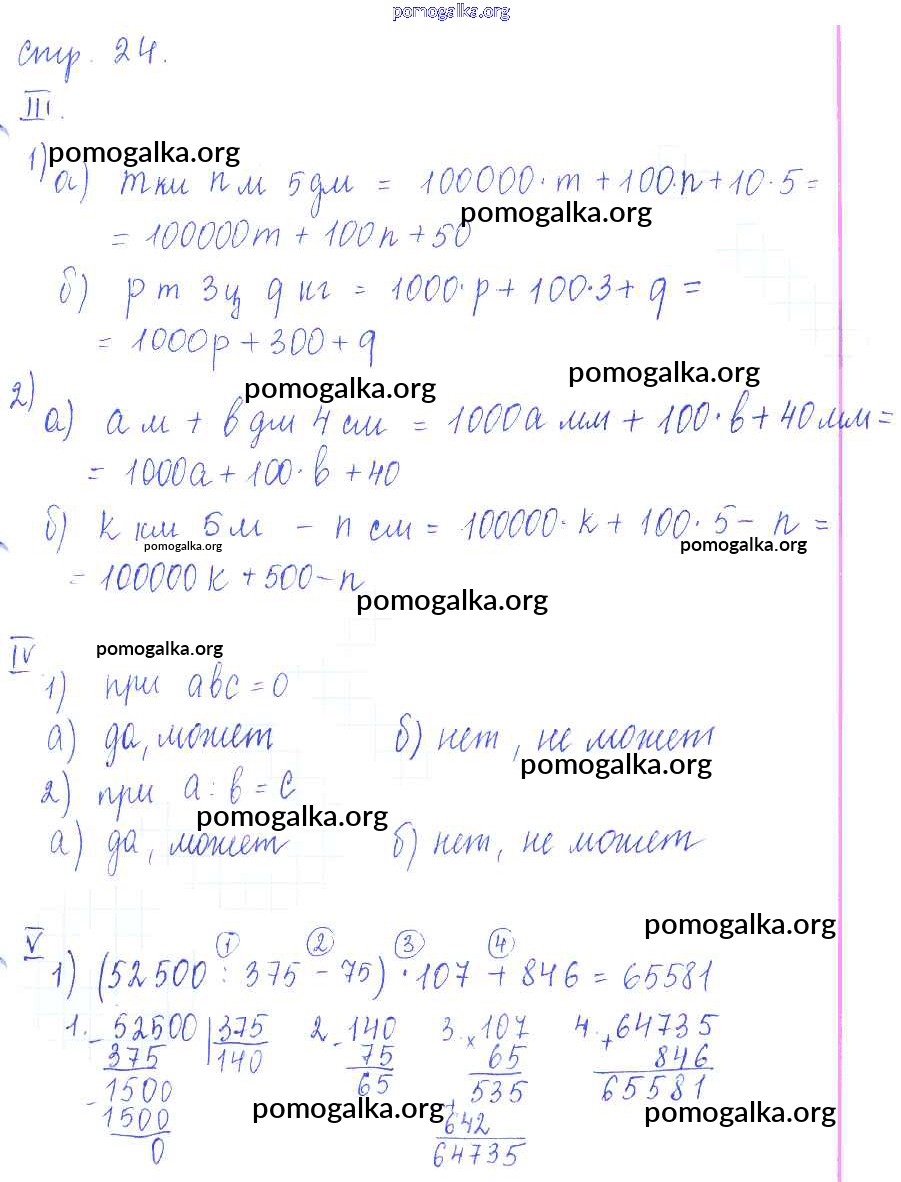 pomogalka.org
стр. 24.
III.
pomogalka.org
1) а) m км n м 5 дм = 100000·m + 100·n + 10·5 =
pomogalka.org
= 100000m + 100n + 50
б) p т 3ц q кг = 1000·p + 100·3 + q =
= 1000p + 300 + q
pomogalka.org pomogalka.org
2) а) a м + b дм 4 см = 1000a мм + 100·b + 40 мм =
= 1000a + 100·b + 40
б) k км 5 м - n см = 100000·k + 100·5 - n =
pomogalka.org pomogalka.org
= 100000k + 500 - n
pomogalka.org
IV pomogalka.org
1) при abc = 0
а) да, может б) нет, не может
pomogalka.org
2) при a : b = c
pomogalka.org
а) да, может б) нет, не может
pomogalka.org
V 1 2 3 4
1) (52500 : 375 - 75) · 107 + 846 = 65581
1. - 52500 | 375 2. - 140 3. × 107 4. + 64735
375 140 75 65 846
- 1500 65 + 535 65581
1500 pomogalka.org 642 pomogalka.org
0 64735